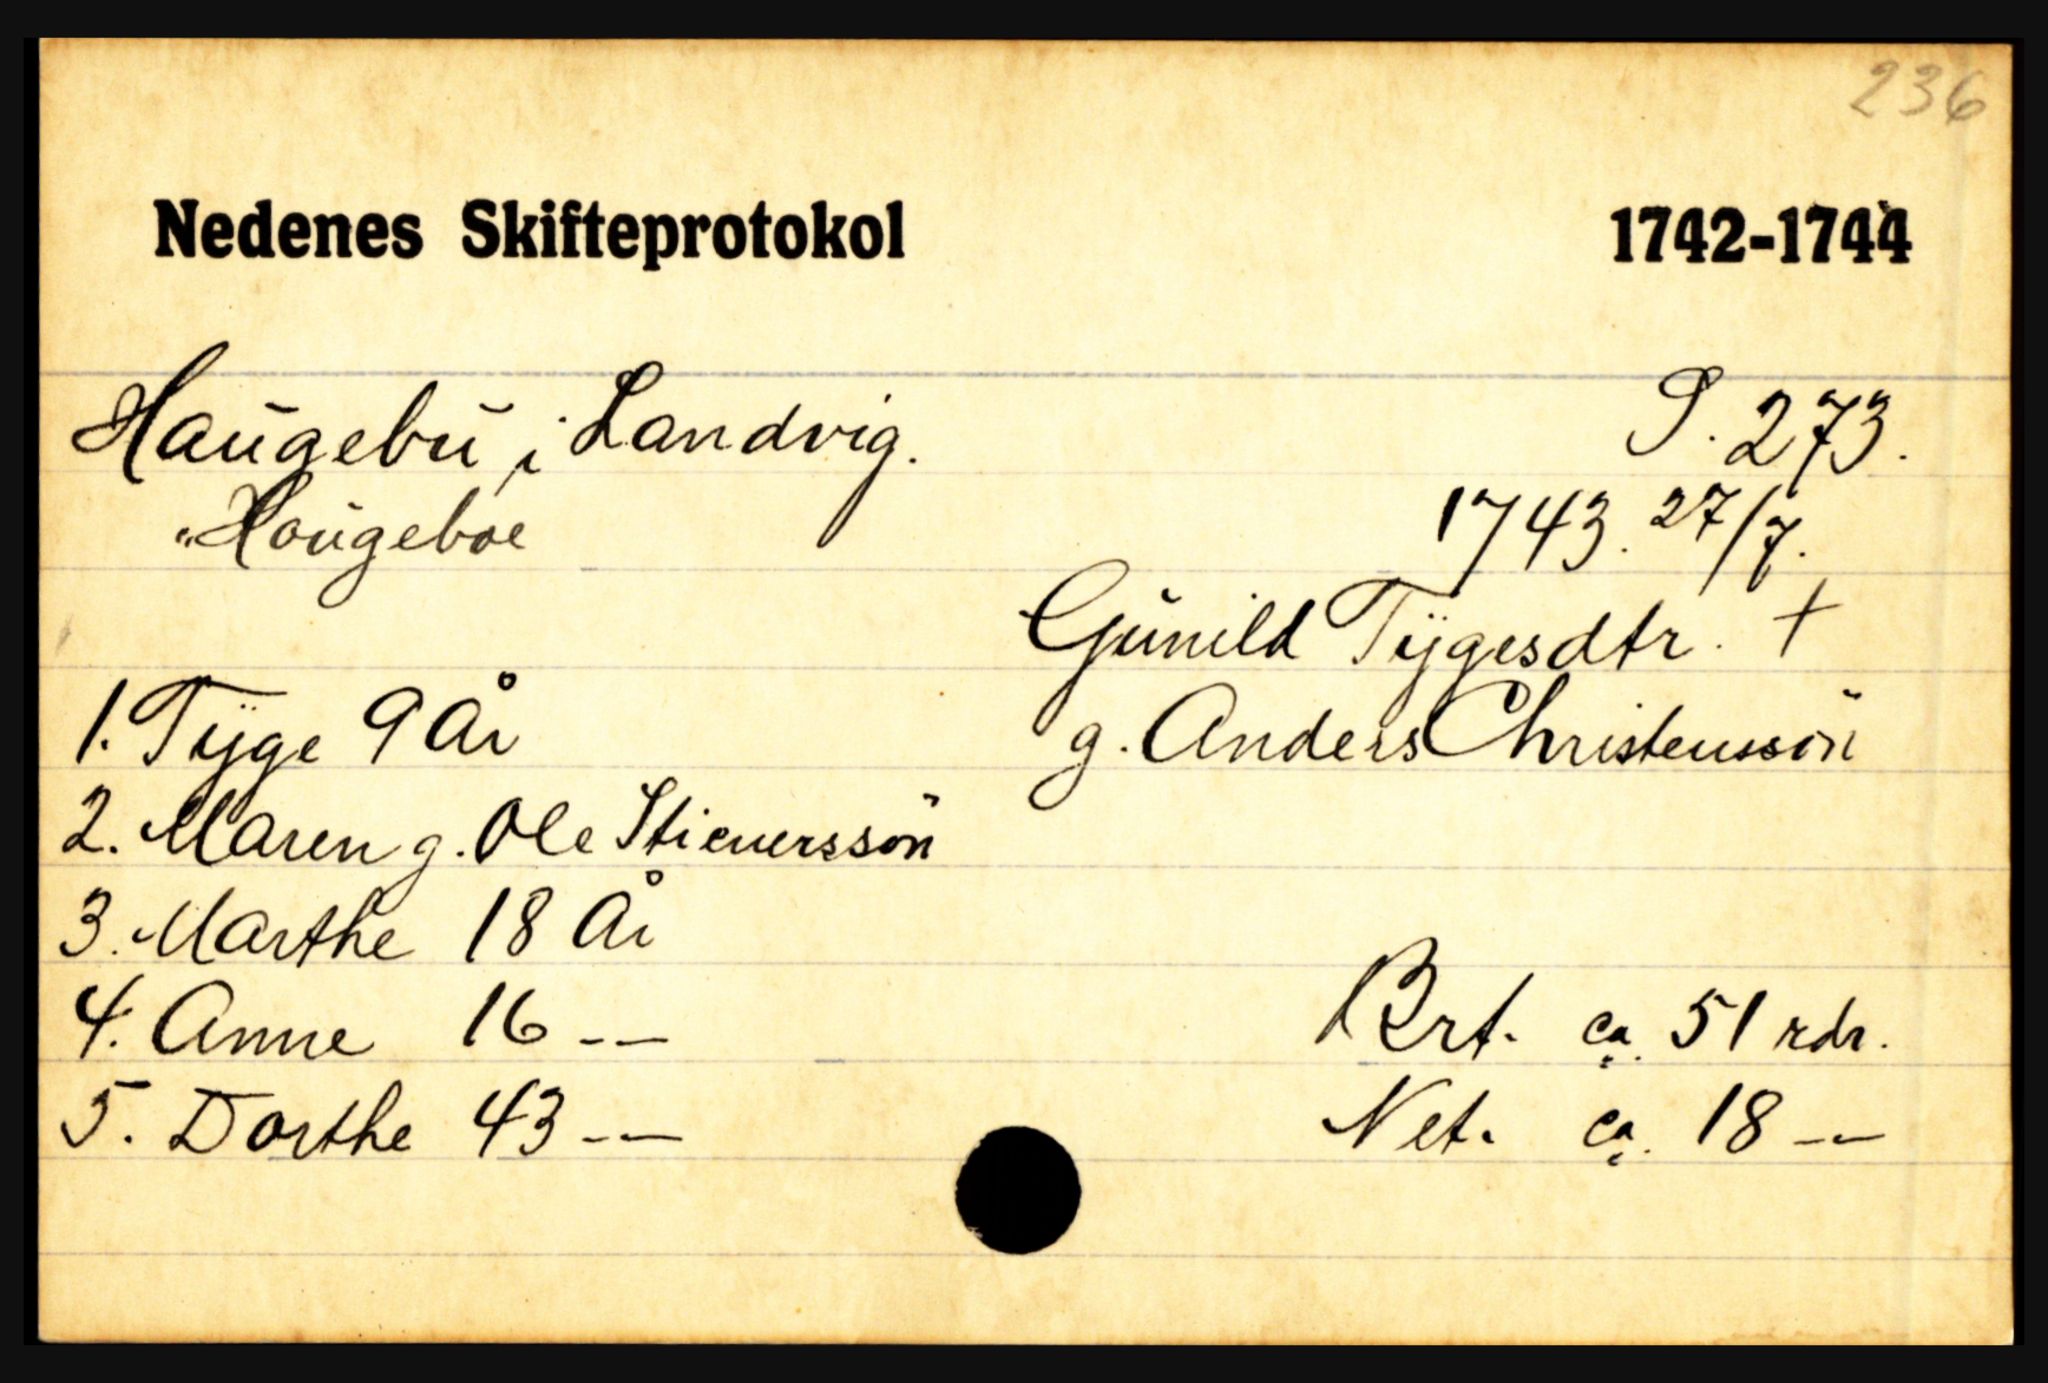 236
Nedenes Skifteprotokol 1742-1744
Haugebu i Landvig. S. 273.
"Hougeboe 1743. 27/7.
Gunild Tÿgesdtr. †
1. Tÿge 9 År g. Anders Christenssön
2. Maren g. Ole Stienerssön
3. Marthe 18 År
4. Anne 16 -- Brt. ca. 51 rdr.
5. Dorthe 43 -- Net. ca. 18 --